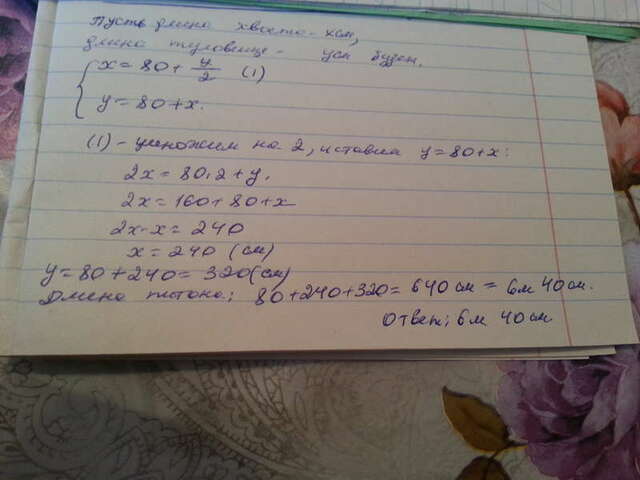 Пусть длина хвоста - x см,
длина туловища - y см будет.
x = 80 + y/2 (1)
y = 80 + x.
(1) - умножим на 2, и ставим y = 80 + x:
2x = 80·2 + y.
2x = 160 + 80 + x
2x - x = 240
x = 240 (см)
y = 80 + 240 = 320 (см)
Длина питона: 80 + 240 + 320 = 640 см = 6 м 40 см.
Ответ: 6 м 40 см